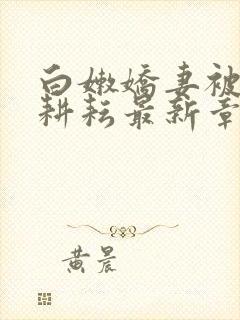 白嫩娇妻被
耕耘最新章
黄晨